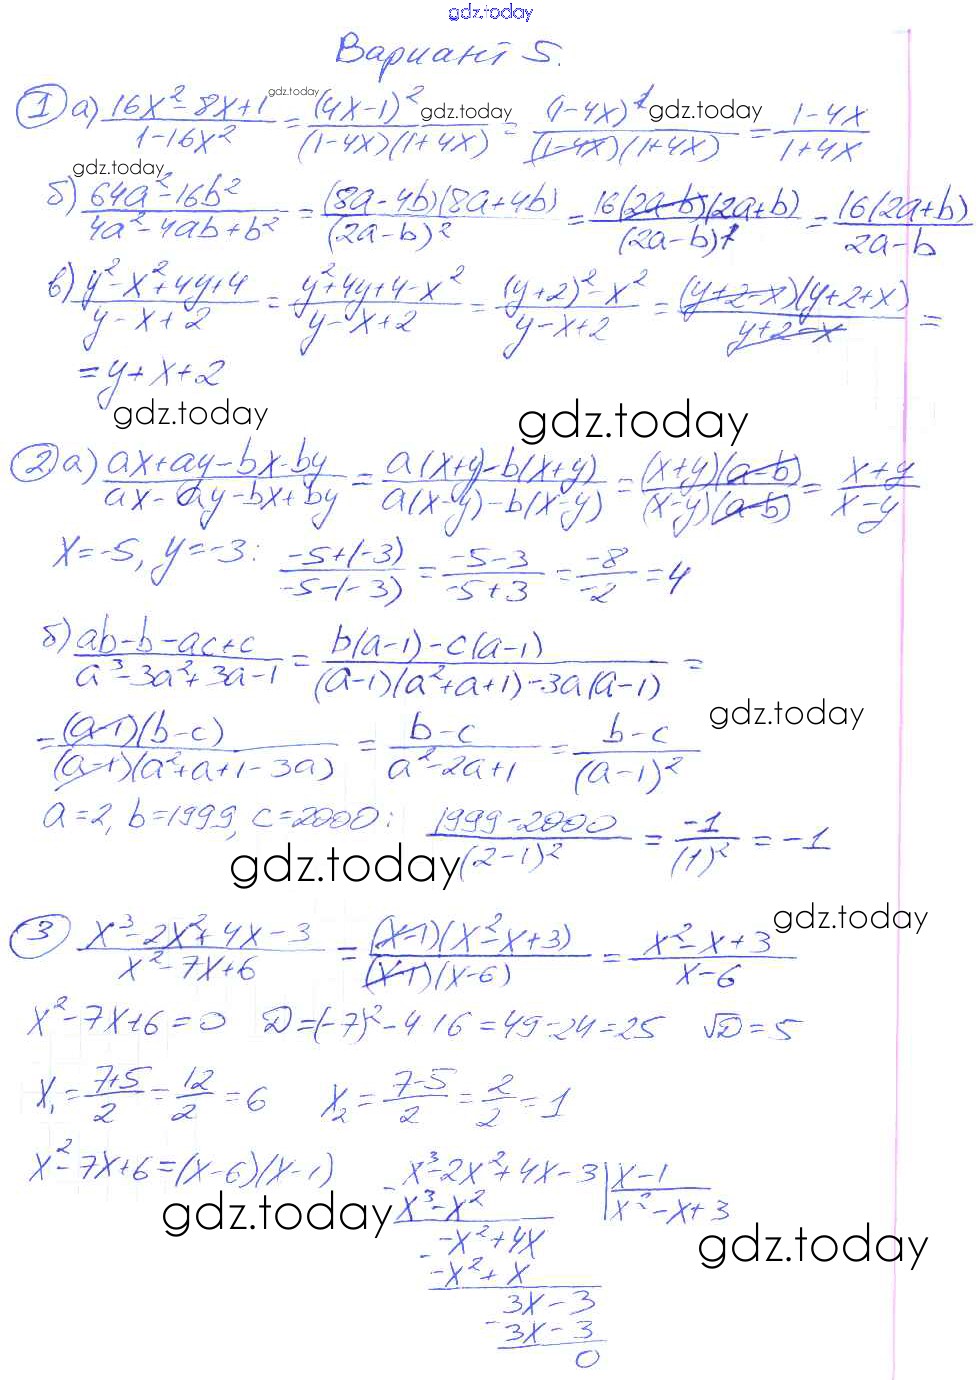 gdz.today
Вариант 5.
1 а) (16x² - 8x + 1)/(1 - 16x²) = (4x - 1)²/((1 - 4x)(1 + 4x)) = (1 - 4x)²/((1 - 4x)(1 + 4x)) = (1 - 4x)/(1 + 4x)
gdz.today gdz.today gdz.today
gdz.today
б) (64a² - 16b²)/(4a² - 4ab + b²) = (8a - 4b)(8a + 4b)/(2a - b)² = 16(2a - b)(2a + b)/(2a - b)² = 16(2a + b)/(2a - b)
в) (y² - x² + 4y + 4)/(y - x + 2) = (y² + 4y + 4 - x²)/(y - x + 2) = ((y + 2)² - x²)/(y - x + 2) = (y + 2 - x)(y + 2 + x)/(y + 2 - x) =
= y + x + 2
gdz.today gdz.today
2 а) (ax + ay - bx - by)/(ax - ay - bx + by) = (a(x + y) - b(x + y))/(a(x - y) - b(x - y)) = (x + y)(a - b)/((x - y)(a - b)) = (x + y)/(x - y)
x = -5, y = -3: (-5 + (-3))/(-5 - (-3)) = (-5 - 3)/(-5 + 3) = -8/-2 = 4
б) (ab - b - ac + c)/(a³ - 3a² + 3a - 1) = (b(a - 1) - c(a - 1))/((a - 1)(a² + a + 1) - 3a(a - 1)) =
gdz.today
= (a - 1)(b - c)/((a - 1)(a² + a + 1 - 3a)) = (b - c)/(a² - 2a + 1) = (b - c)/(a - 1)²
a = 2, b = 1999, c = 2000: (1999 - 2000)/(2 - 1)² = -1/(1)² = -1
gdz.today
gdz.today
3 (x³ - 2x² + 4x - 3)/(x² - 7x + 6) = (x - 1)(x² - x + 3)/((x - 1)(x - 6)) = (x² - x + 3)/(x - 6)
x² - 7x + 6 = 0 D = (-7)² - 4·1·6 = 49 - 24 = 25 √D = 5
x₁ = (7 + 5)/2 = 12/2 = 6 x₂ = (7 - 5)/2 = 2/2 = 1
x² - 7x + 6 = (x - 6)(x - 1) - x³ - 2x² + 4x - 3 | x - 1
gdz.today x³ - x² x² - x + 3
- -x² + 4x gdz.today
-x² + x
3x - 3
- 3x - 3
0